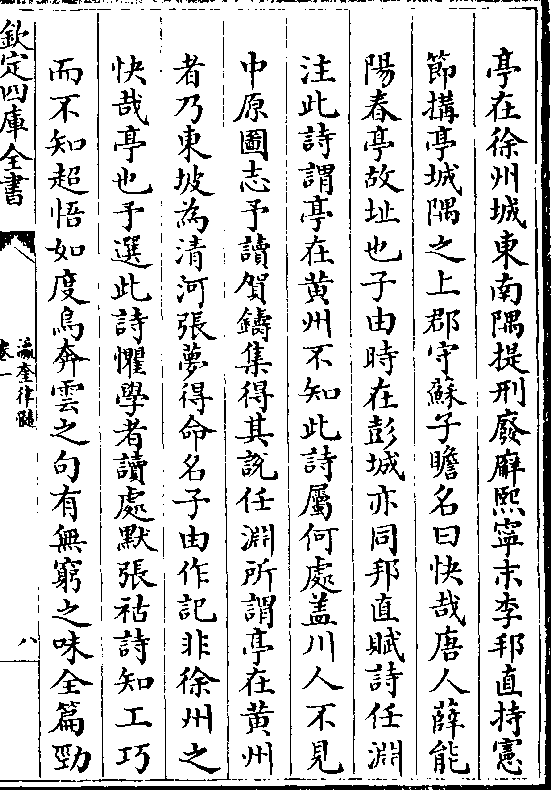 亭在徐州城東南隅提刑廢廨熙寧末李邦直持憲
節搆亭城隅之上郡守蘇子瞻名曰快哉唐人薛能
陽春亭故址也子由時在彭城亦同邦直賦詩任淵
注此詩謂亭在黄州不知此詩屬何處盖川人不見
中原圖志予讀賀鑄集得其説任淵所謂亭在黄州
者乃東坡為清河張夢得命名子由作記非徐州之
快哉亭也予選此詩懼學者讀處默張祜詩知工巧
而不知超悟如度鳥奔雲之句有無窮之味全篇勁
欽定四庫全書
瀛奎律髓
卷一
八